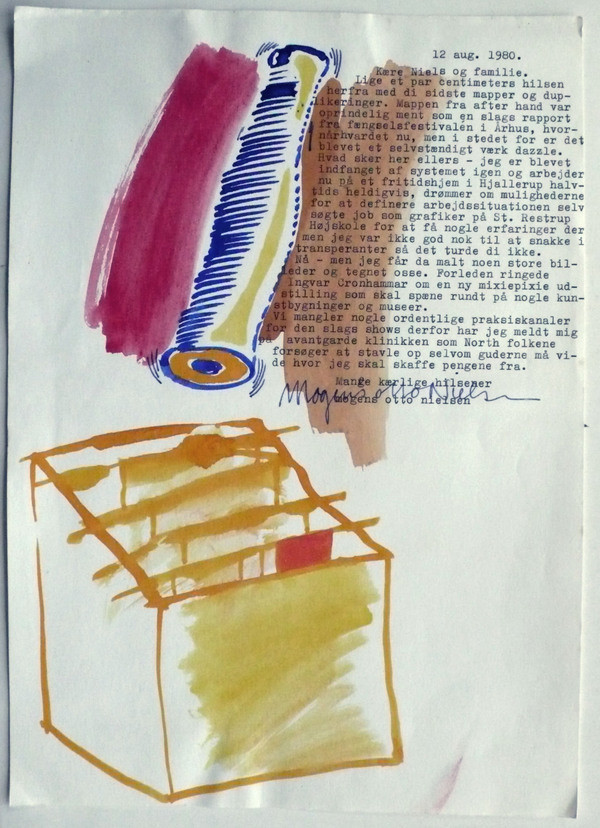 12 aug. 1980.
Kære Niels og familie.
Lige et par centimeters hilsen
herfra med di sidste mapper og dup-
likeringer. Mappen fra after hand var
oprindelig ment som en slags rapport
fra fængselsfestivalen i Århus, hvor-
nårhvardet nu, men i stedet for er det
blevet et selvstændigt værk dazzle.
Hvad sker her ellers - jeg er blevet
indfanget af systemet igen og arbejder
nu på et fritidshjem i Hjallerup halv-
tids heldigvis, drømmer om mulighederne
for at definere arbejdssituationen selv
søgte job som grafiker på St. Restrup
Højskole for at få nogle erfaringer der
men jeg var ikke god nok til at snakke i
transperanter så det turde di ikke.
Nå - men jeg får da malt noen store bil-
leder og tegnet osse. Forleden ringede
Ingvar Cronhammar om en ny mixiepixie ud-
stilling som skal spæne rundt på nogle kun-
stbygninger og museer.
Vi mangler nogle ordentlige praksiskanaler
for den slags shows derfor har jeg meldt mig
på avantgarde klinikken som North folkene
forsøger at stavle op selvom guderne må vi-
de hvor jeg skal skaffe pengene fra.
Mange kærlige hilsener
Mogens Otto Nielsen
mogens otto nielsen